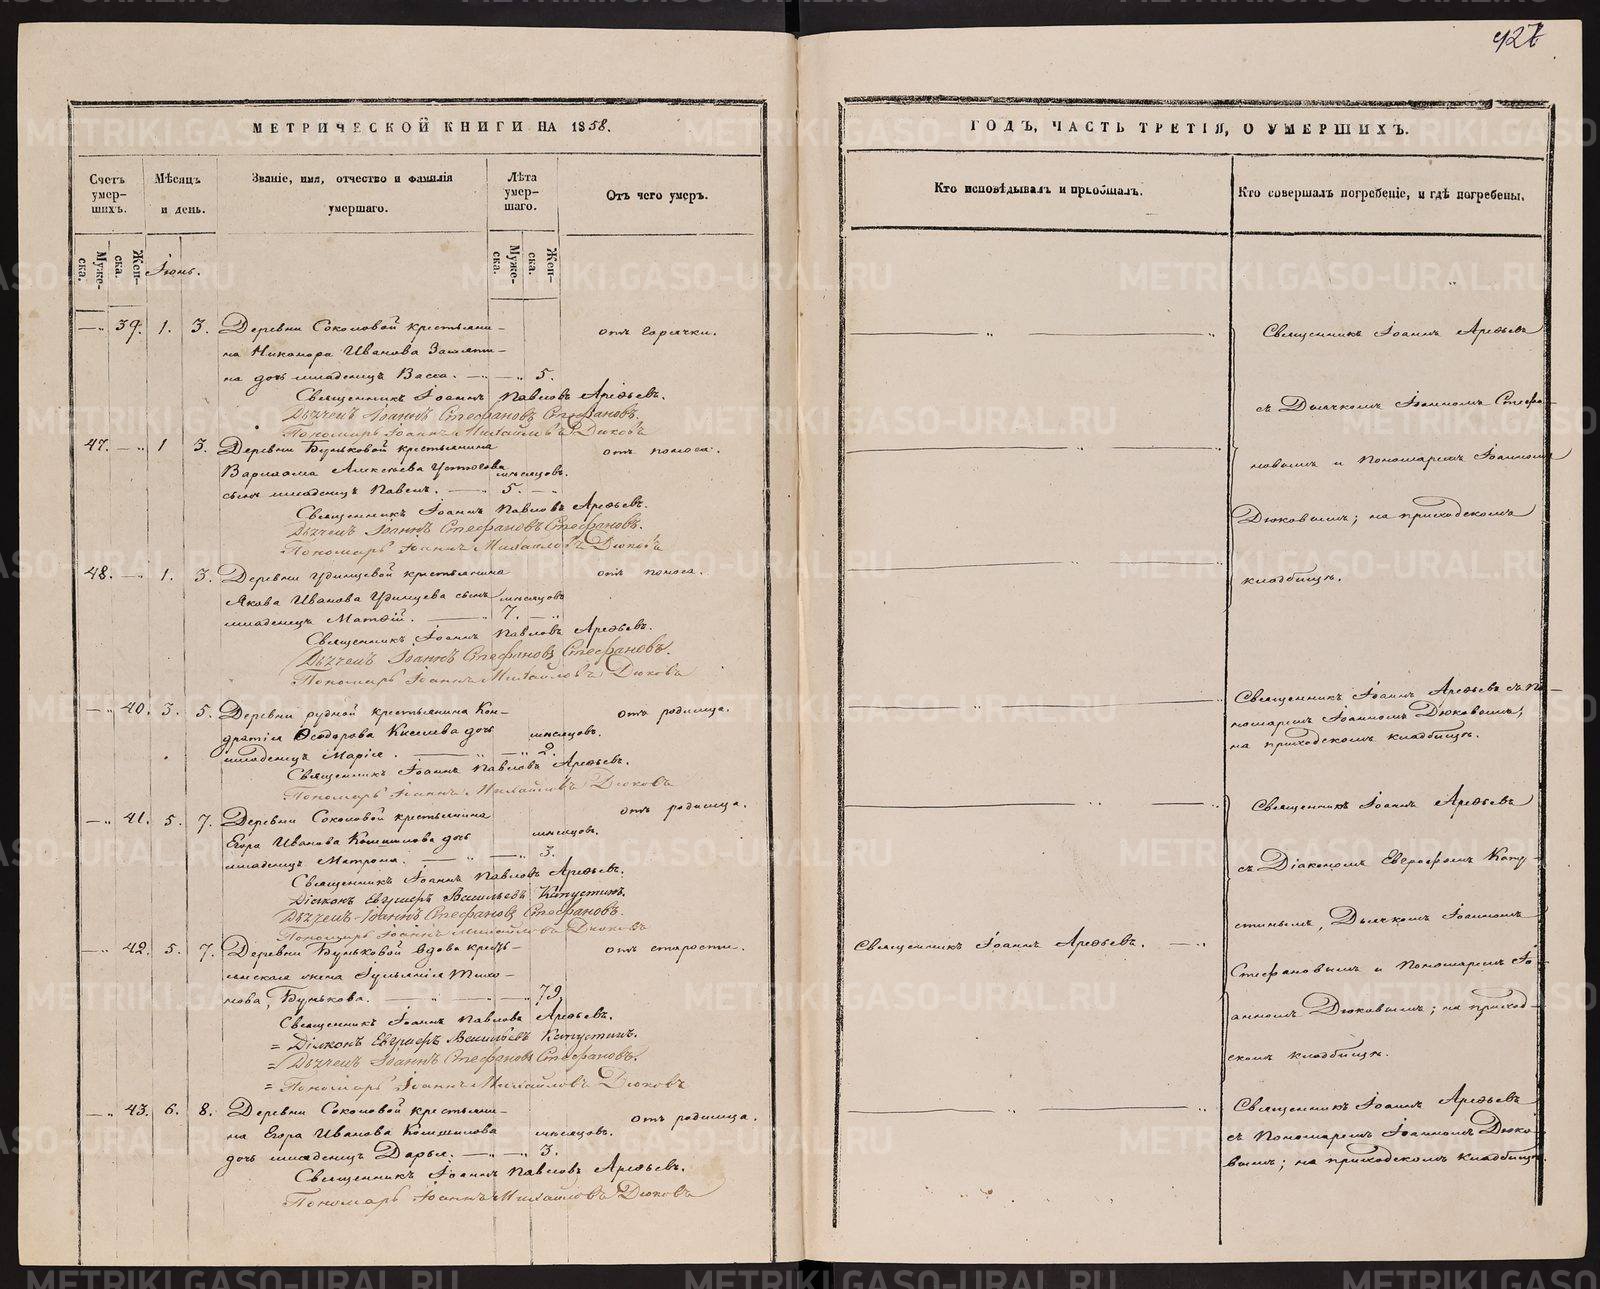 427
МЕТРИЧЕСКОЙ КНИГИ НА 1858.
Счетъ умер-шихъ.
Мѣсяцъ и день.
Званіе, имя, отчество и фамилія умершаго.
Лѣта умер-шаго.
Отъ чего умеръ.
Муже-ска.
Жен-ска.
Муже-ска.
Жен-ска.
Іюнь.
— „ 39. 1. 3. Деревни Соколовой крестьяни- отъ горячки.
на Никонора Иванова
на дочь младенецъ Васса. — „ 5.
Священникъ Іоаннъ Павловъ Арефьевъ.
Дьячекъ Іоаннъ Стефановъ Стефановъ.
Пономарь Іоаннъ Михайловъ Дюковъ
47. — „ 1 3. Деревни Буньковой крестьянина отъ поноса.
Варлаама Алексѣева Устюгова мѣсяцовъ.
сынъ младенецъ Павелъ. — 5. — „
Священникъ Іоаннъ Павловъ Арефьевъ.
Дьячекъ Іоаннъ Стефановъ Стефановъ.
Пономарь Іоаннъ Михайловъ Дюковъ
48. — „ 1. 3. Деревни Удинцевой крестьянина отъ поноса.
Якова Иванова Удинцева сынъ мѣсяцовъ
младенецъ Матфій. — 7. — „
Священникъ Іоаннъ Павловъ Арефьевъ.
Дьячекъ Іоаннъ Стефановъ Стефановъ.
Пономарь Іоаннъ Михайловъ Дюковъ
— „ 40. 3. 5. Деревни рудной крестьянина Кон- отъ родимца.
дратія Ѳеодорова Киселева дочь мѣсяцовъ.
младенецъ Марія. — „ — „ 2.
Священникъ Іоаннъ Павловъ Арефьевъ.
Пономарь Іоаннъ Михайловъ Дюковъ
— „ 41. 5. 7. Деревни Соколовой крестьянина отъ родимца.
Егора Иванова Кошмилова дочь мѣсяцовъ.
младенецъ Матрона. — „ — „ 3.
Священникъ Іоаннъ Павловъ Арефьевъ.
Діаконъ Евграфъ Васильевъ Капустинъ.
Дьячекъ Іоаннъ Стефановъ Стефановъ.
Пономарь Іоаннъ Михайловъ Дюковъ
— „ 42. 5. 7. Деревни Буньковой вдова кресть- отъ старости.
янская жена Іульянія Тихо-
нова, Бунькова. — „ — „ — 79
Священникъ Іоаннъ Павловъ Арефьевъ.
= Діаконъ Евграфъ Васильевъ Капустинъ.
= Дьячекъ Іоаннъ Стефановъ Стефановъ.
= Пономарь Іоаннъ Михайловъ Дюковъ
— „ 43. 6. 8. Деревни Соколовой крестьяни- отъ родимца.
на Егора Иванова Кошмилова мѣсяцовъ.
дочь младенецъ Дарья. — „ — „ 3.
Священникъ Іоаннъ Павловъ Арефьевъ.
Пономарь Іоаннъ Михайловъ Дюковъ
ГОДЪ, ЧАСТЬ ТРЕТІЯ, О УМЕРШИХЪ.
Кто исповѣдывалъ и пріобщалъ.
Кто совершалъ погребеніе, и гдѣ погребены.
Священникъ Іоаннъ Арефьевъ
съ Дьячкомъ Іоанномъ Стефа-
новымъ и Пономаремъ Іоанномъ
Дюковымъ; на приходскомъ
кладбищѣ.
Священникъ Іоаннъ Арефьевъ съ По-
номаремъ Іоанномъ Дюковымъ;
на приходскомъ кладбищѣ.
Священникъ Іоаннъ Арефьевъ
съ Діакономъ Евграфомъ Капу-
стинымъ, Дьячкомъ Іоанномъ
Священникъ Іоаннъ Арефьевъ. — „
Стефановымъ и Пономаремъ Іо-
анномъ Дюковымъ; на приход-
скомъ кладбищѣ.
Священникъ Іоаннъ Арефьевъ
съ Пономаремъ Іоанномъ Дюко-
вымъ; на приходскомъ кладбищѣ.
METRIKI.GASO-URAL.RU